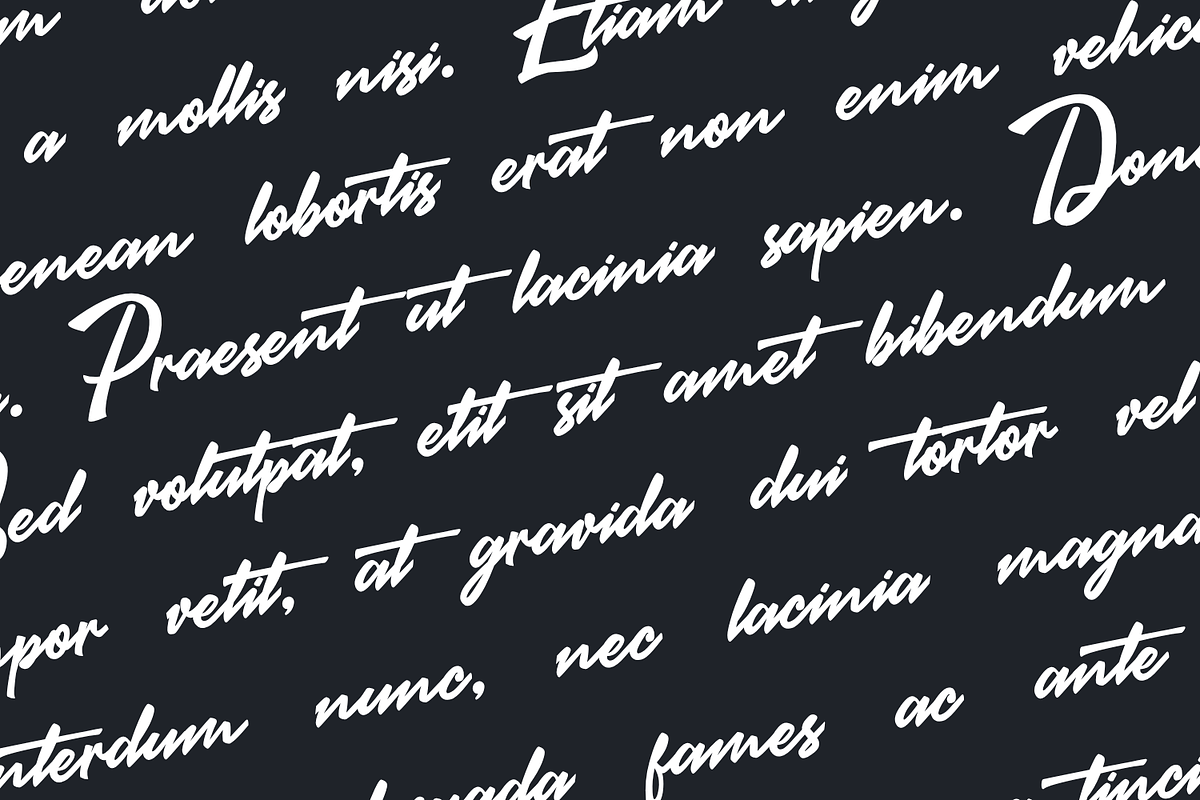 m
a mollis nisi. Etiam
enean lobortis erat non enim vehic
. Praesent ut lacinia sapien. Done
Sed volutpat, elit sit amet bibendum
mpor velit, at gravida dui tortor vel
nterdum nunc, nec lacinia magna
fames ac ante
tinci